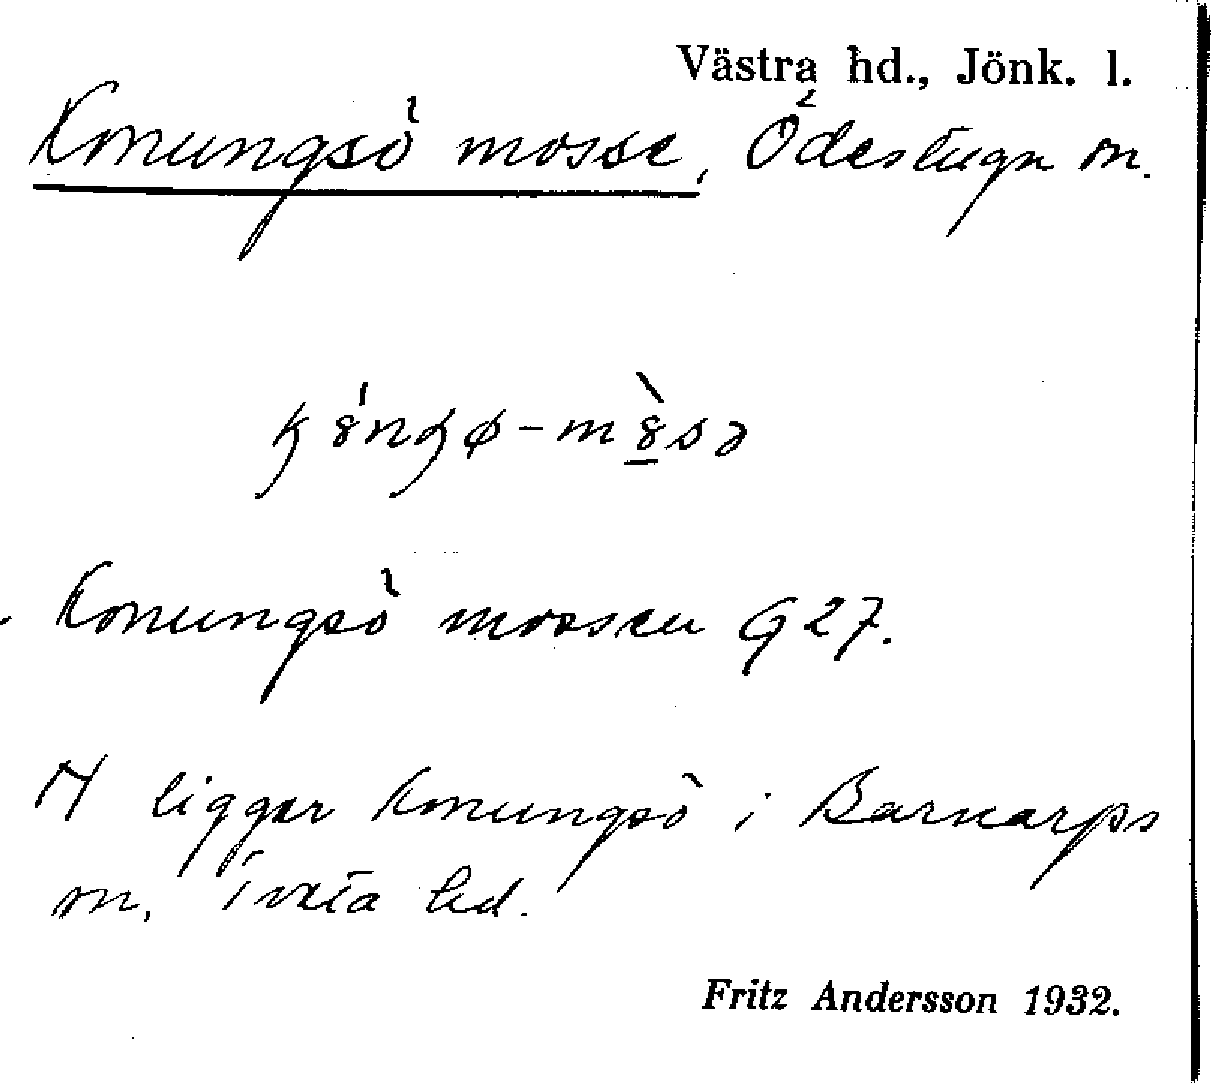 Västra hd., Jönk. l.
Konungsö mosse, Ödestugu sn.
Konungsö mossen G 27.
N ligger Konungsö i Barnarps
sn, Tveta hd.
Fritz Andersson 1932.